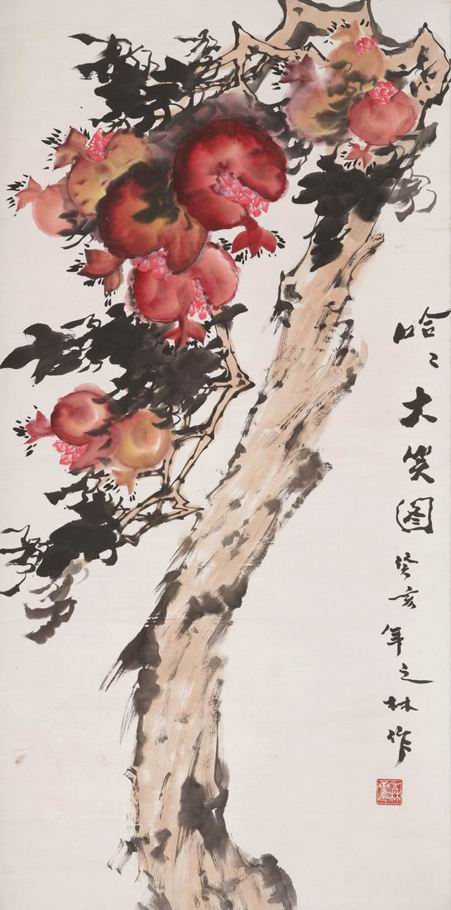 哈〻大笑图
癸亥年之林作